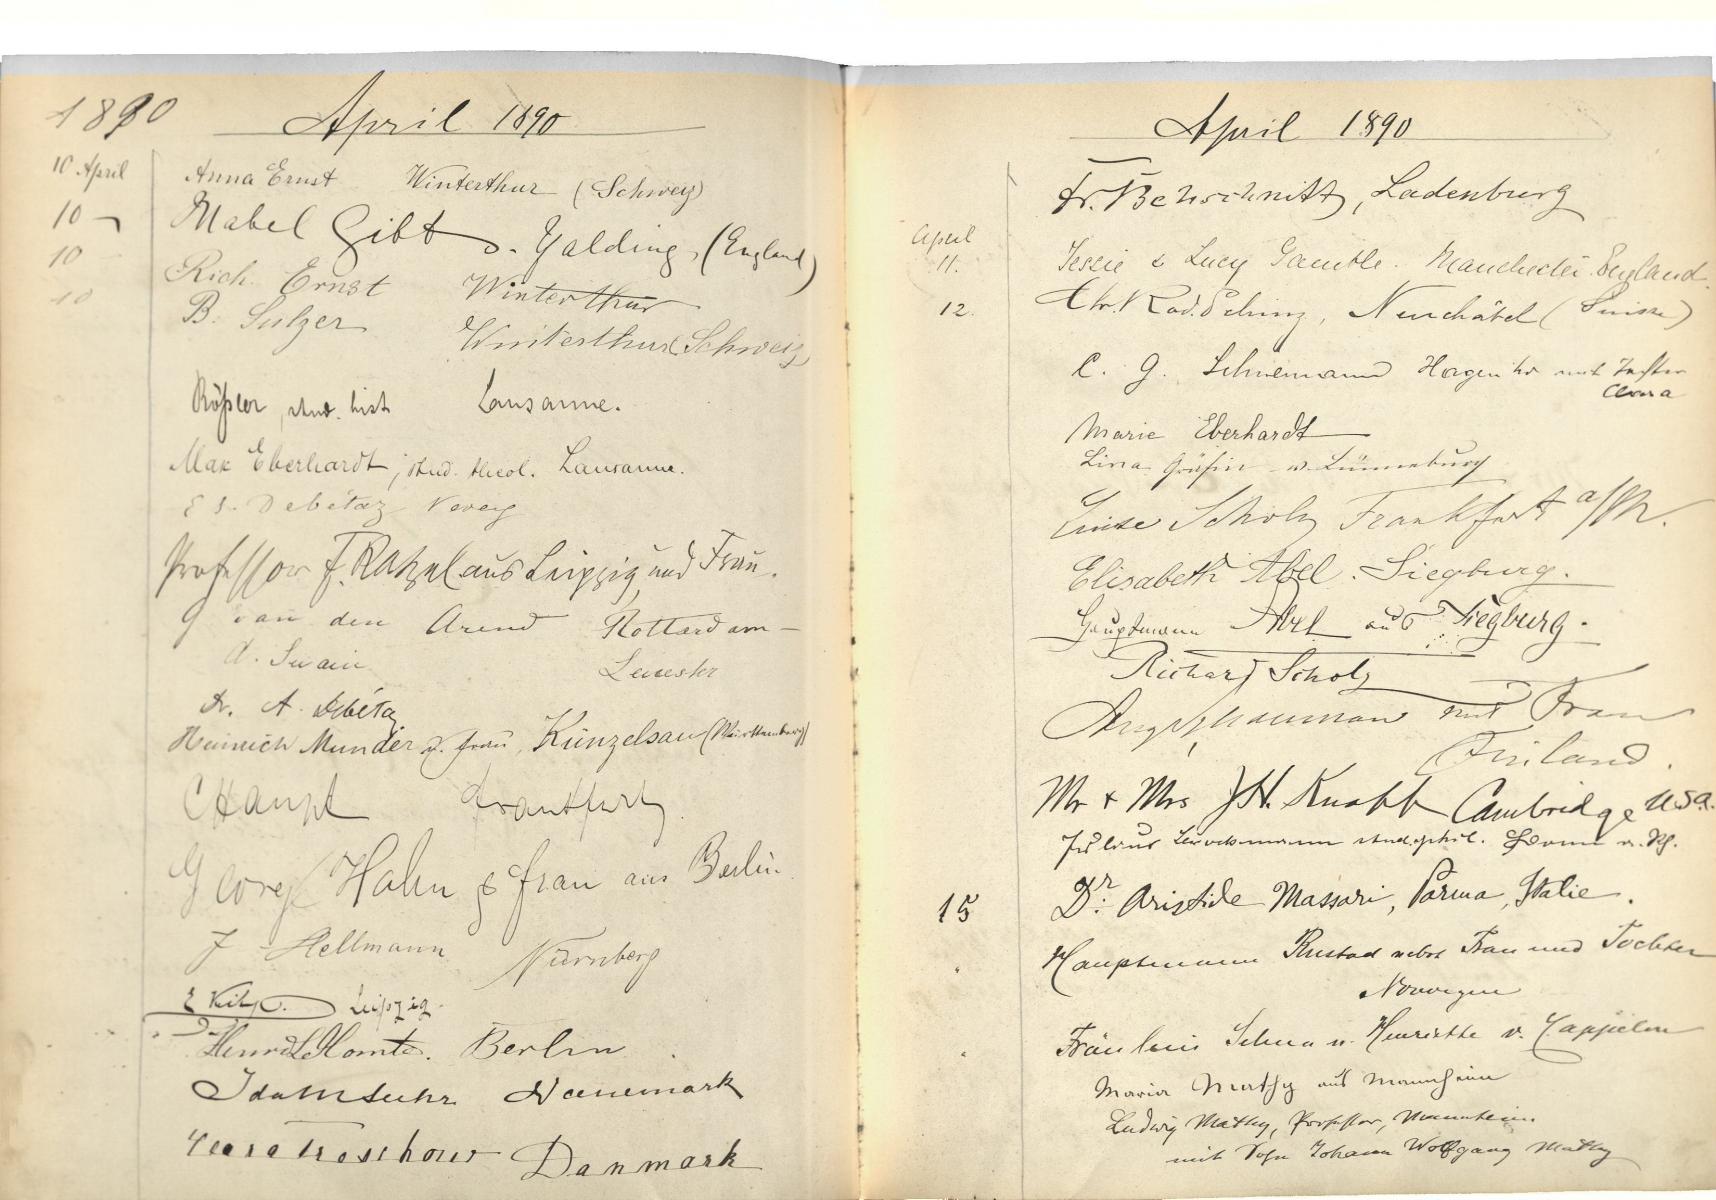 1890
April 1890
10 April Anna Ernst Winterthur (Schweiz)
10 Mabel Gibt Yalding, (England)
10 Rich. Ernst Winterthur
10 B. Sulzer Winterthur (Schweiz)
Rößler, stud. hist Lausanne.
Max Eberhardt, stud. theol. Lausanne.
Debétaz Vevey
Professor F. Ratzel aus Leipzig und Frau.
G van den Arend Rotterdam
A. Swain Leicester
Dr. A. Debétaz
Heinrich Munder u. Frau, Künzelsau (Württemberg)
C Haupt Frankfurt
Georg Hahn & Frau aus Berlin
J Hellmann Nürnberg
E Leipzig.
Berlin
Danemark
Danmark
April 1890
Fr. Ladenburg
April
11. Jessie & Lucy Gamble. Manchester England.
12. Chr. Rod. Neuchâtel (Suisse)
C. G. Schiemann Hagen mit Tochter
Clara
Marie Eberhardt
Lina Gräfin v. Lünneburg
Luise Scholz Frankfurt a/M.
Elisabeth Abel. Siegburg.
Hauptmann Abel aus Siegburg.
Richard Scholz
mit Frau
Finland.
Mr & Mrs J H. Knapp Cambridge U.S.A.
Julius stud. phil. Bonn a. Rh.
15 Dr. Aristide Massari, Parma, Italie.
Hauptmann Rustad nebst Frau und Tochter
Norwegen
Fräulein Selma u. Henriette v. Cappelen
Maria Mathy aus Mannheim
Ludwig Mathy, Professor, Mannheim.
mit Sohn Johann Wolfgang Mathy